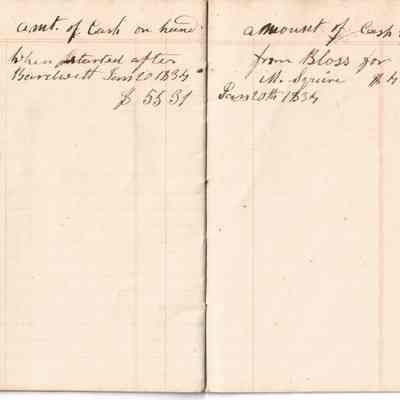 amt. of Cash on hand
When started after
Bardwett Jan 20 1834
$ 55 51
amount of Cash
from Bloss for
M. Squire $ 4
Jan 20th 1834